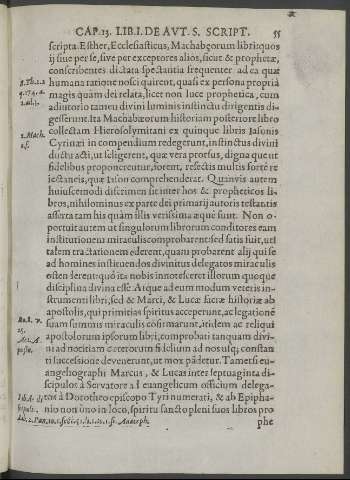 CAP. 13. LIB. I. DE AVT. S. SCRIPT. 55
scripta. Esther, Ecclesiasticus, Machabęorum libri: quos
ij siue per se, siue per exceptores alios, sicut & prophetæ,
conscribentes dictata spectantia frequenter ad ea quæ
humana ratione nosci quirent, quasi ex persona propria
magis quàm dei relata, licet non luce prophetica, cum
adiutorio tamen diuini luminis instinctu dirigentis di-
gesserunt. Ita Machabæorum historiam posteriore libro
collectam Hierosolymitani ex quinque libris Iasonis
2. Mach.
Cyrinæi in compendium redegerunt, instinctus diuini
ductu acti, ut seligerent, quæ vera prorsus, digna que ut
fidelibus proponerentur, forent, resectis multis fortè re
iectaneis, quæ Iason comprehenderat. Quanvis autem
huiuscemodi discrimen sit inter hos & propheticos li-
bros, nihilominus ex parte dei primarij autoris testantis
asserta tam his quàm illis verissima æque sunt. Non o-
portuit autem ut singulorum librorum conditores eam
institutionem miraculis comprobarent: sed satis fuit, ut
talem tractationem ederent, quam probarent alij qui se
ad homines instituendos diuinitus delegatos miraculis
ostenderent: quò ita nobis innotesceret illorum quoque
disciplina diuina esse. Atque ad eum modum veteris in-
strumenti libri, sed & Marci, & Lucæ sacræ historiæ ab
apostolis, qui primitias spiritus acceperunt, ac legationē
suam summis miraculis cōfirmarunt, itidem ac reliqui
apostolorum ipsorum libri, comprobati tanquam diui-
ni ad notitiam cæterorum fidelium ad nos usq; constan
ti successione deuenerunt, ut mox pādetur. Tametsi eu-
angeliographi Marcus, & Lucas inter septuaginta di-
scipulos à Seruatore ad euangelicum officium delega-
tos à Dorotheo episcopo Tyri numerati, & ab Epipha-
nio non uno in loco, spiritu sancto pleni suos libros pro
phe